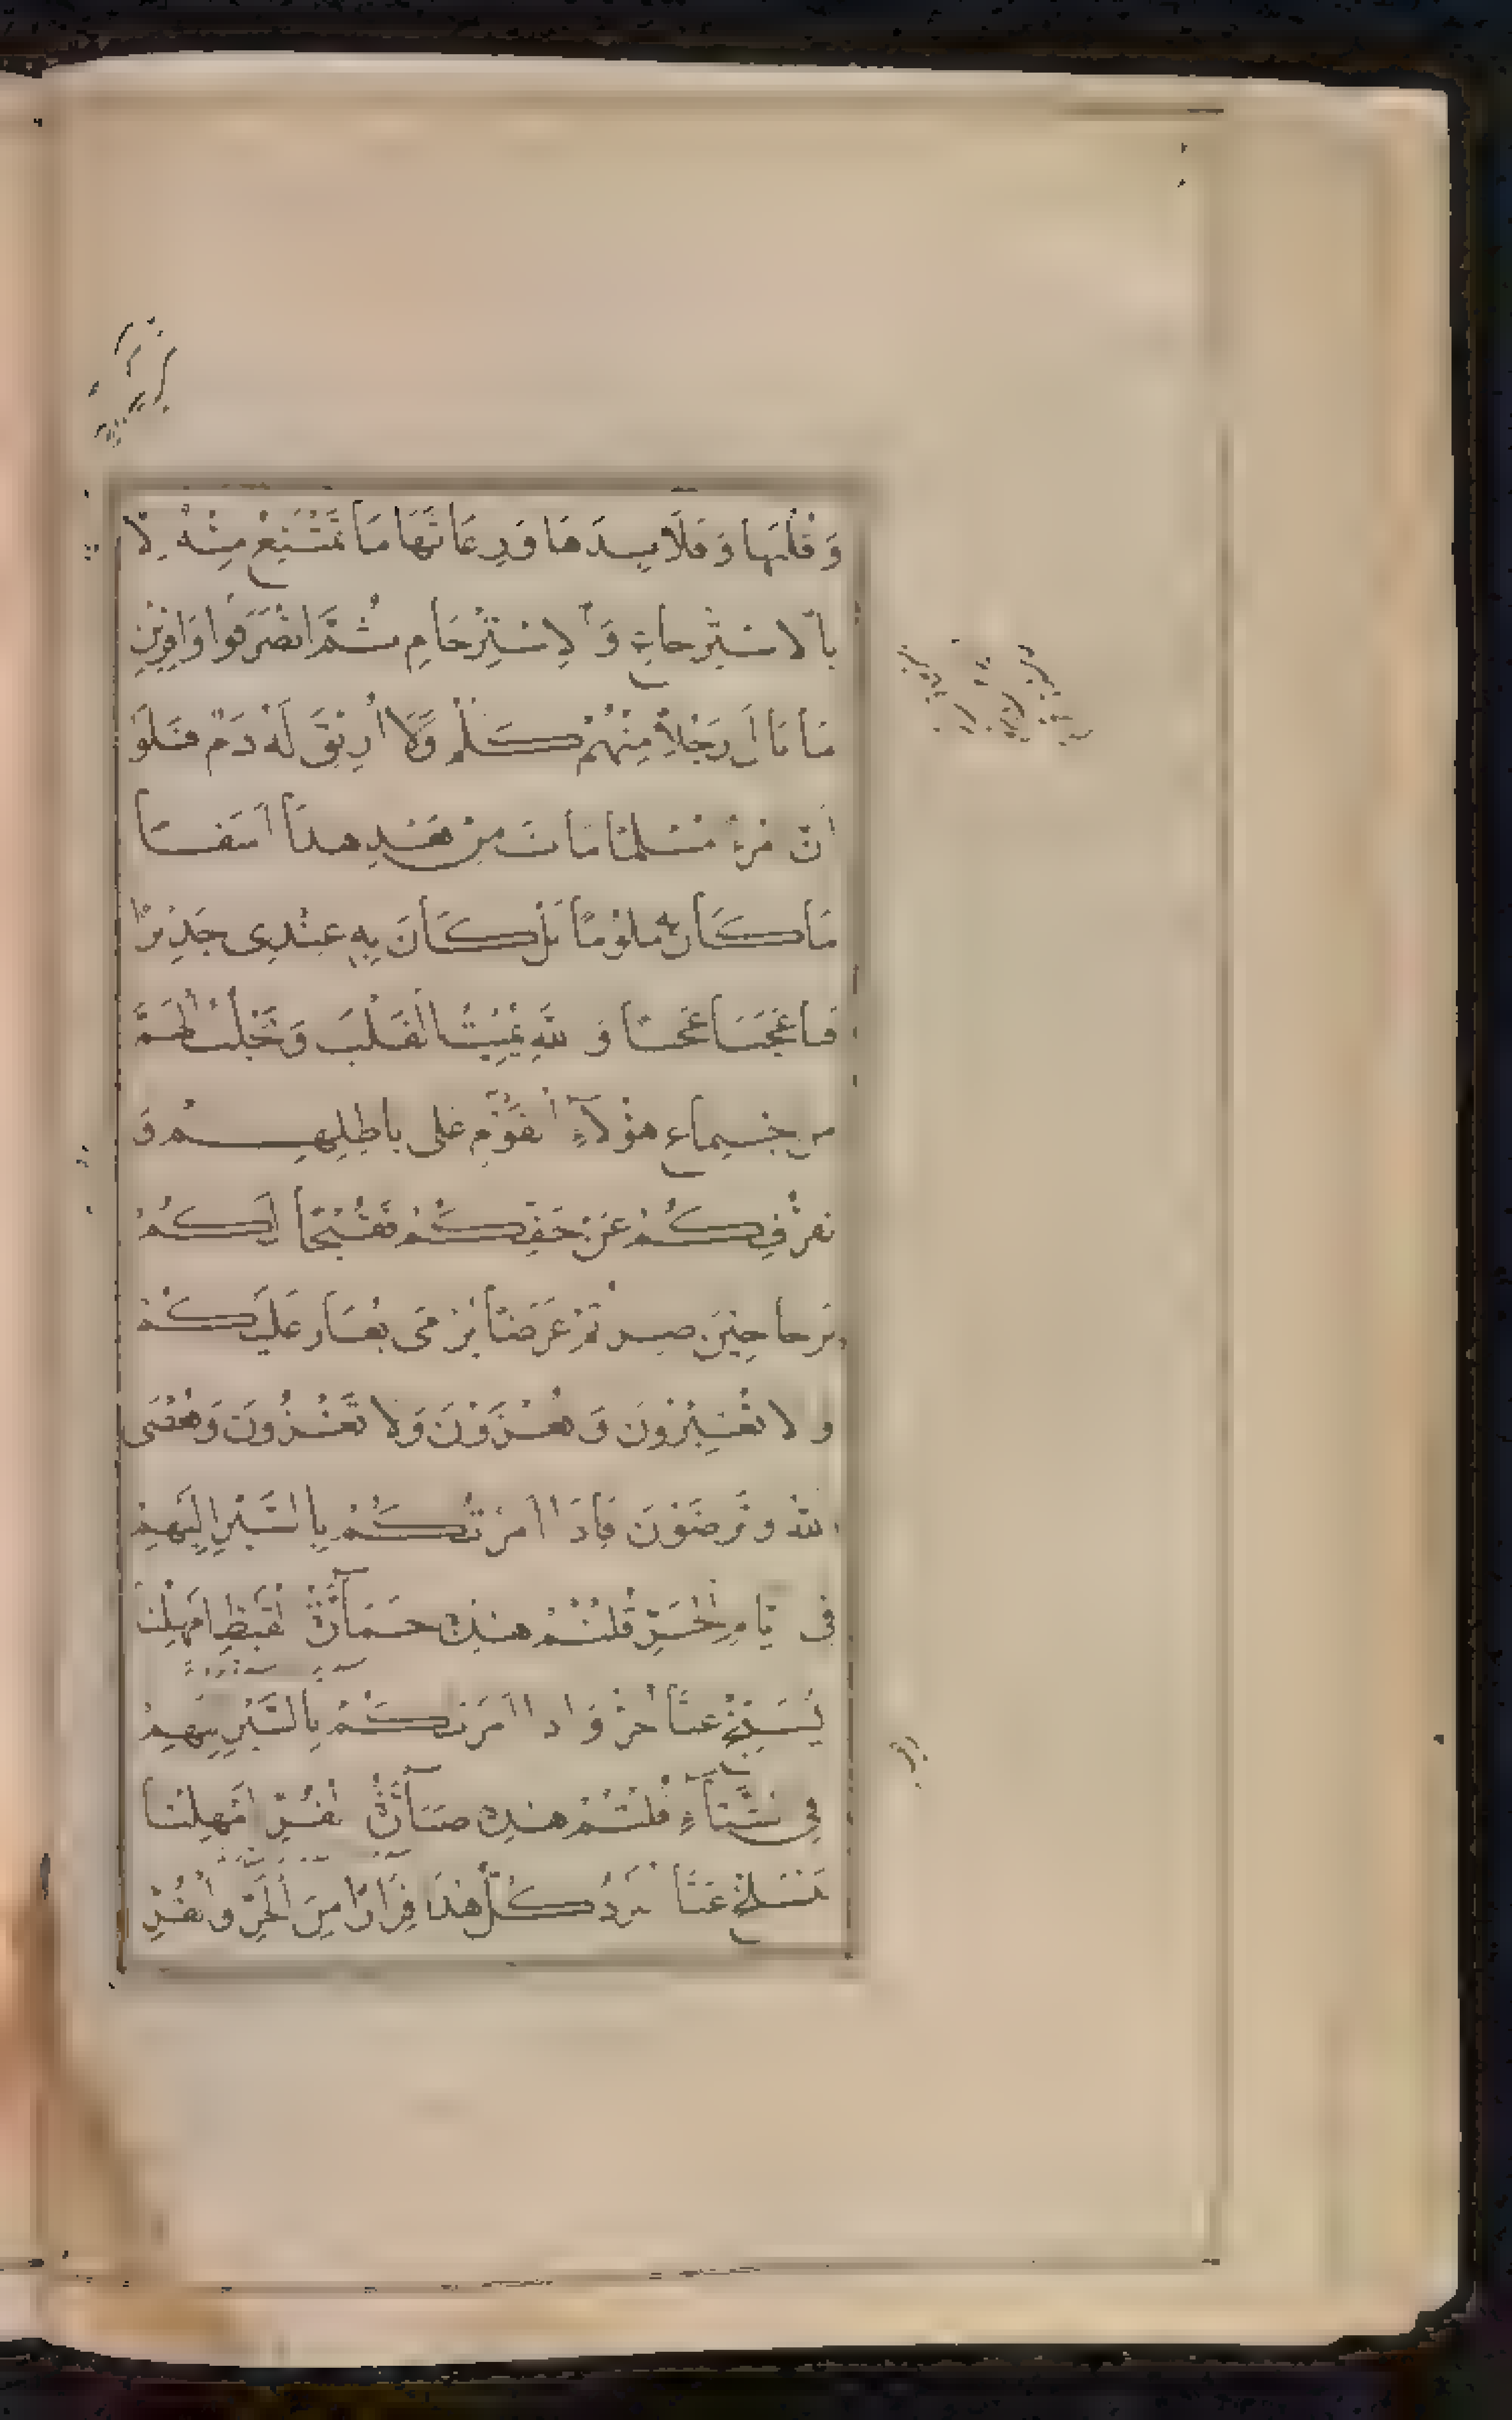 وَقُلْبَهَا وَقَلَائِدَهَا وَرِعَاثَهَا مَا تَمْتَنِعُ مِنْهُ إِلَّا
بِالْاِسْتِرْجَاعِ وَالْاِسْتِرْحَامِ ثُمَّ انْصَرَفُوا وَافِرِينَ
مَا نَالَ رَجُلًا مِنْهُمْ كَلْمٌ وَلَا أُرِيقَ لَهُ دَمٌ فَلَوْ
أَنَّ امْرَءً مُسْلِمًا مَاتَ مِنْ بَعْدِ هٰذَا أَسَفًا
مَا كَانَ بِهِ مَلُومًا بَلْ كَانَ بِهِ عِنْدِي جَدِيرًا
فَيَا عَجَبًا عَجَبًا وَاللهِ يُمِيتُ الْقَلْبَ وَيَجْلِبُ الْهَمَّ
مِنِ اجْتِمَاعِ هٰؤُلَاءِ الْقَوْمِ عَلَى بَاطِلِهِمْ وَ
تَفَرُّقِكُمْ عَنْ حَقِّكُمْ فَقُبْحًا لَكُمْ
وَتَرَحًا حِينَ صِرْتُمْ غَرَضًا يُرْمَى يُغَارُ عَلَيْكُمْ
وَلَا تُغِيرُونَ وَتُغْزَوْنَ وَلَا تَغْزُونَ وَيُعْصَى
اللهُ وَتَرْضَوْنَ فَإِذَا أَمَرْتُكُمْ بِالسَّيْرِ إِلَيْهِمْ
فِي أَيَّامِ الْحَرِّ قُلْتُمْ هٰذِهِ حَمَارَّةُ الْقَيْظِ أَمْهِلْنَا
يُسَبَّخْ عَنَّا الْحَرُّ وَإِذَا أَمَرْتُكُمْ بِالسَّيْرِ إِلَيْهِمْ
فِي الشِّتَاءِ قُلْتُمْ هٰذِهِ صَبَارَّةُ الْقُرِّ أَمْهِلْنَا
يَنْسَلِخْ عَنَّا الْبَرْدُ كُلُّ هٰذَا فِرَارًا مِنَ الْحَرِّ وَالْقُرِّ